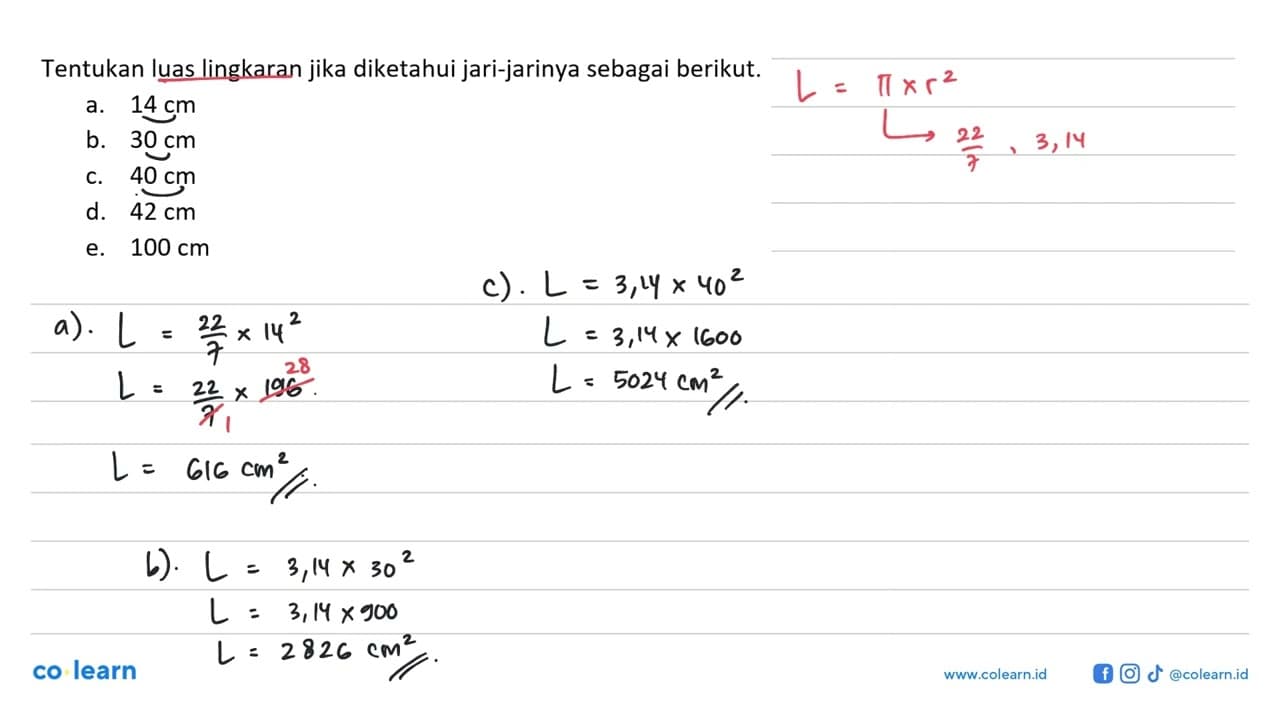 Tentukan luas lingkaran jika diketahui jari-jarinya sebagai berikut.
a. 14 cm
b. 30 cm
c. 40 cm
d. 42 cm
e. 100 cm
L = π x r²
22/7 , 3,14
a). L = 22/7 x 14²
L = 22/7 x 196
28
1
L = 616 cm²
b). L = 3,14 x 30²
L = 3,14 x 900
L = 2826 cm²
c). L = 3,14 x 40²
L = 3,14 x 1600
L = 5024 cm²
co learn
www.colearn.id
@colearn.id